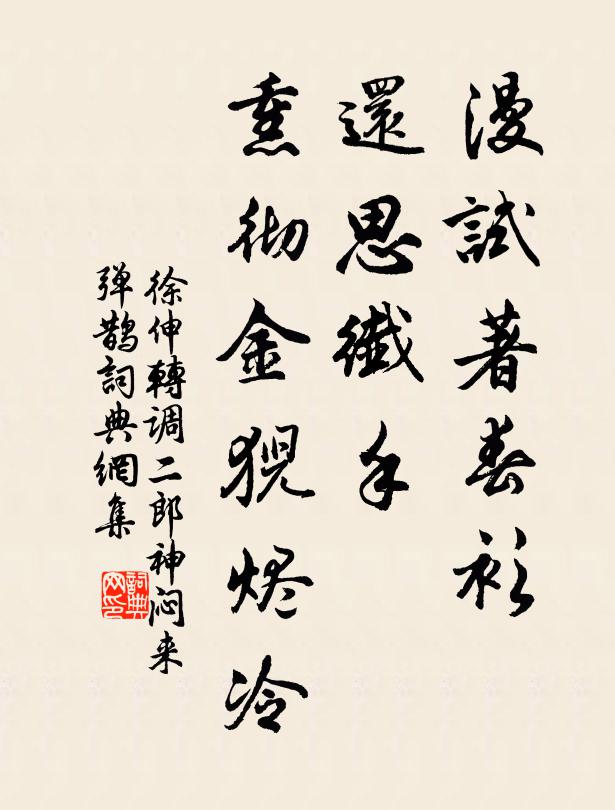 漫試著春衫
還思纖手
熏彻金猊烬冷
徐伸轉调二郎神闷来
弹鹊詞典網集
詞典
网印